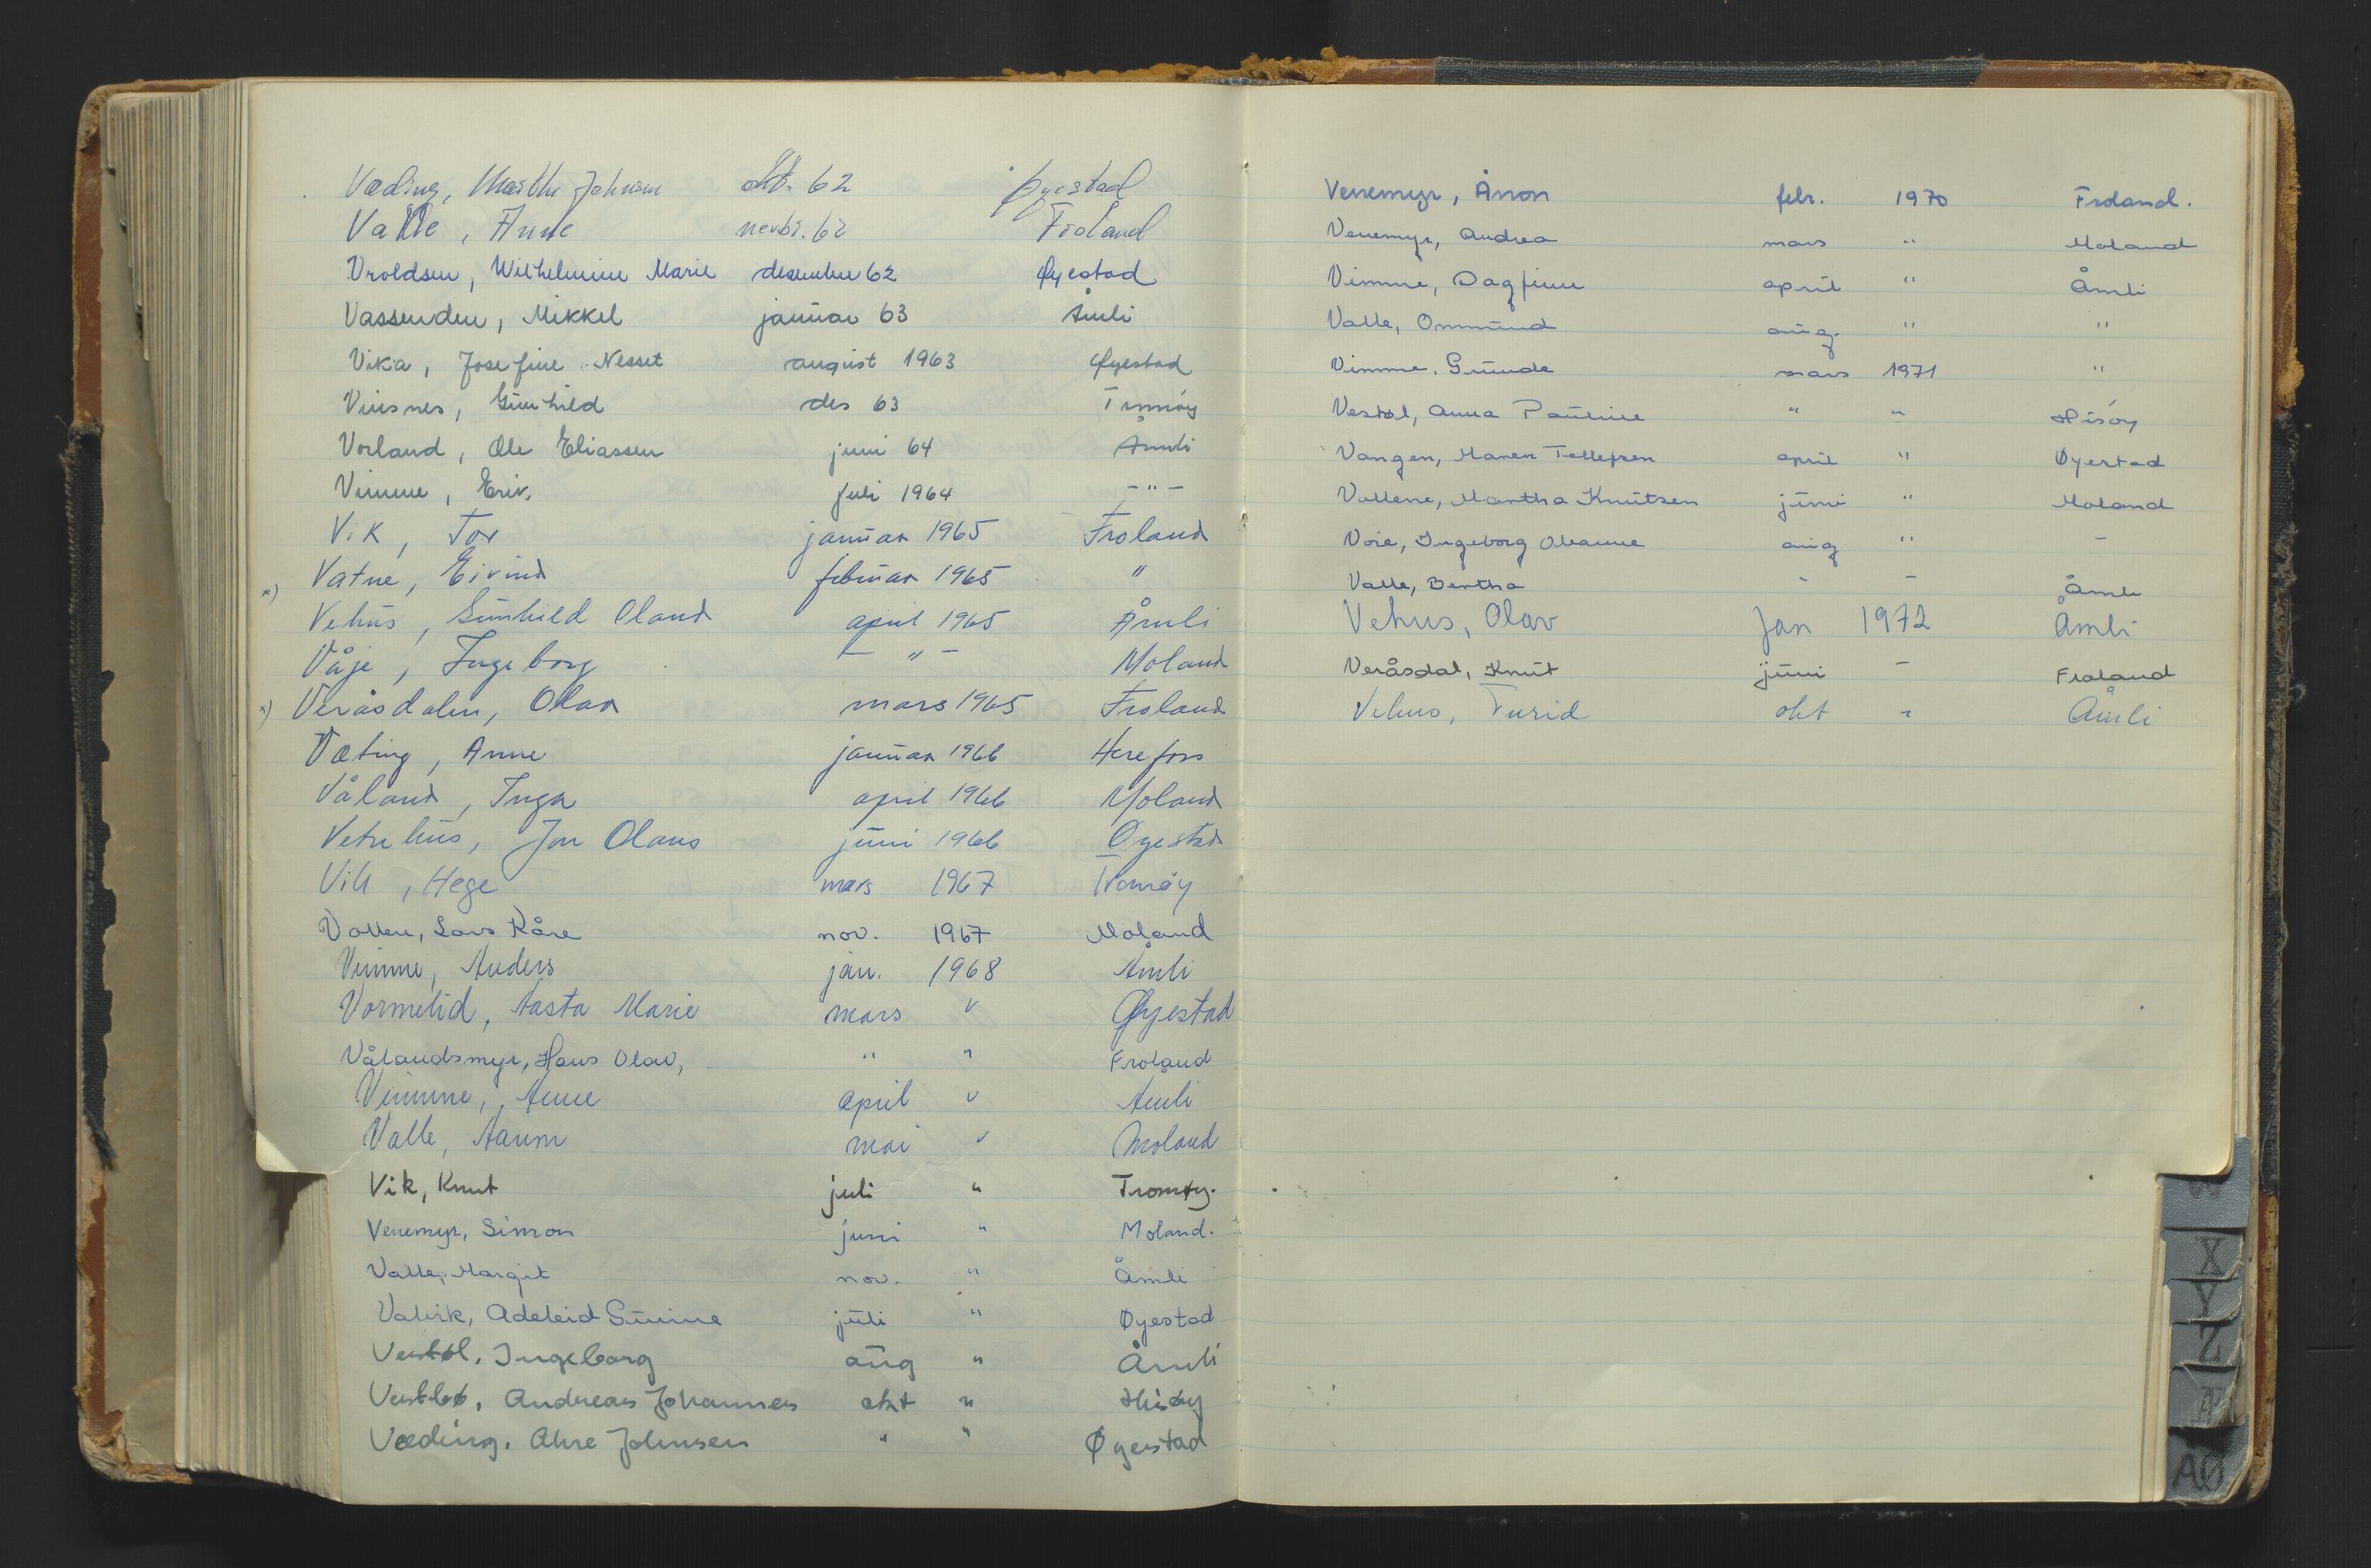 Væding, Marthe Johnsen okt. 62 Øyestad
Valle, Anne novbr. 62 Froland
Vroldsen, Wilhelmine Marie desember 62 Øyestad
Vassenden, Mikkel januar 63 Åmli
Vika, Josefine Nesset august 1963 Øyestad
Vinesnes, Gunhild des 63 Tromøy
Vorland, Ole Eliassen juni 64 Åmli
Vimme, Eriv. juli 1964 -"-
Vik, Tor januar 1965 Froland
Vatne, Eivind februar 1965 "
x) Vehus, Gunhild Oland april 1965 Åmli
Våje, Ingeborg - " - Moland
x) Veråsdalen, Olav mars 1965 Froland
Væting, Anne januar 1966 Herefoss
Våland, Inga april 1966 Moland
Vetrhus, Jon Olaus juni 1966 Øyestad
Vik, Hege mars 1967 Tromøy
Vollen, Lars Kåre nov. 1967 Moland
Vimme, Anders jan. 1968 Åmli
Vormelid, Aasta Marie mars " Øyestad
Vålandsmyr, Hans Olav, " " Froland
Vimme, Anne april " Åmli
Valle, Aanon mai " Moland
Vik, Knut juli " Tromøy.
Venemyr, Simon juni " Moland.
Valle, Margit nov. " Åmli
Valvik, Adeleid Gurine juli " Øyestad
Vestøl, Ingeborg aug " Åmli
Andreas Johannes okt " Hisøy
Væding, Johnsen " " Øyestad
Venemyr, Ånon febr. 1970 Froland.
Venemyr, Andrea mars " Moland
Vimme, Dagfinn april " Åmli
Valle, Ommund aug. " "
Vimme, Gunde mars 1971 "
Vestøl, Anna Pauline " " Hisøy
Vangen, Maren Tellefsen april " Øyestad
Vollene, Martha Knutsen juni " Moland
Voie, Ingeborg Oleanne aug " -
Valle, Bertha - - Åmli
Vehus, Olav Jan 1972 Åmli
Veråsdal, Knut juni - Froland
Vehus, Turid okt - Åmli
W
X
Y
Z
Æ
AØ